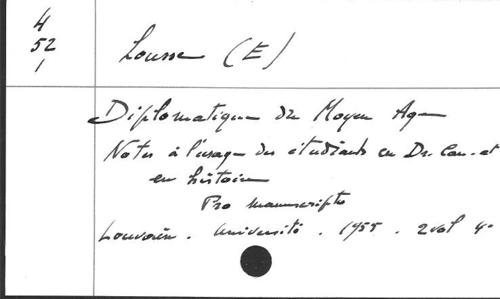 4
52
1
Lousse (E)
Diplomatique du Moyen Age
Notes à l'usage des étudiants en Dr. Can. et
en histoire
Pro manuscripto
Louvain. Université. 1955. 2 vol 4°